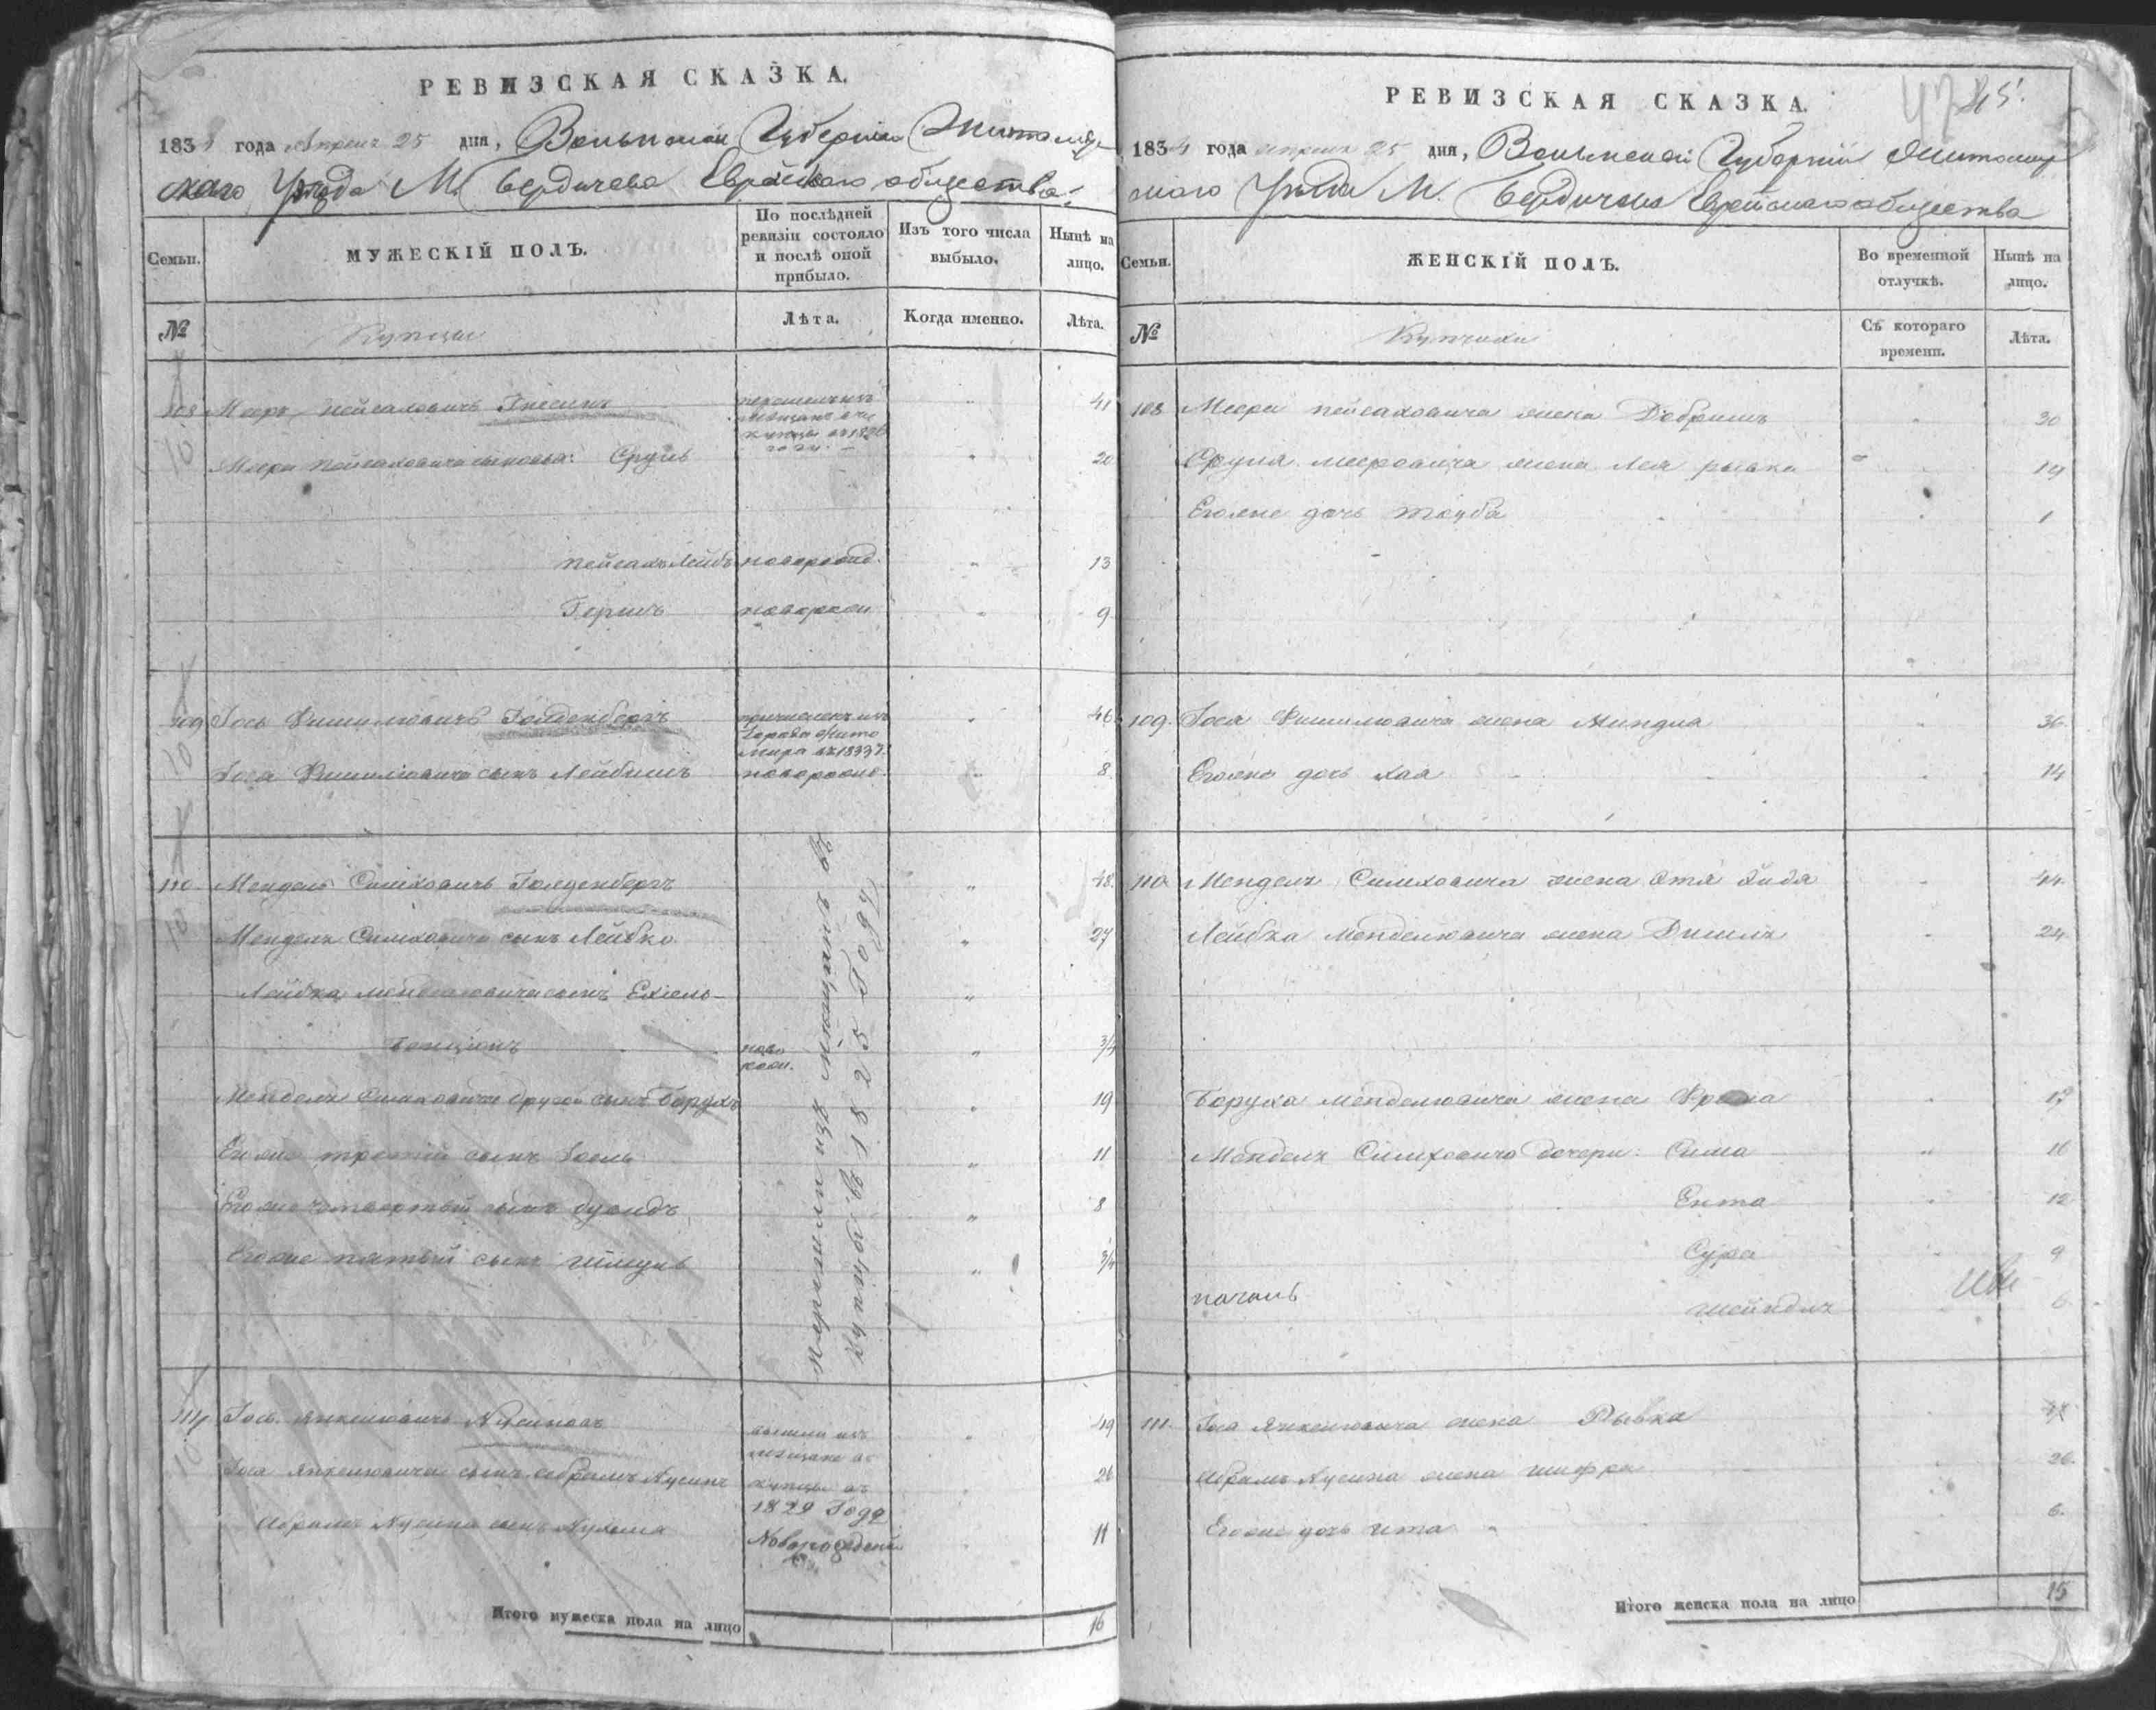 РЕВИЗСКАЯ СКАЗКА.
1834 года Апреля 25 дня, Волынской Губернии Житомир-
скаго Уезда М. Бердичева Еврейскаго общества:
Семьи.
МУЖЕСКІЙ ПОЛЪ.
По послѣдней ревизіи состояло и послѣ оной прибыло.
Изъ того числа выбыло.
Нынѣ на лицо.
№
Купцы
Лѣта.
Когда именно.
Лѣта.
108 Мееръ Пейсаховичъ Гнесинъ 41
мещанъ
купцы въ 1826
году.
Меера Пейсаховича сыновья: Сруль 20
Пейсахъ Лейбъ новорожд. 13
Гершъ новорожд 9
109 Іось Фишилювичъ Голденбергъ причисленъ изъ 46
города Жито
мира въ 1833 г.
Іося Фишилювича сынъ Лейбишъ новорожд. 8
110 Мендель Симховичъ Голденбергъ 48
Менделя Симховича сынъ Лейбко 27
Лейбка Менделювича сынъ Ехіель-
Бенціонъ ново рожд. 3/4
Менделя Симховича другой сынъ Борухъ 19
Его же третій сынъ Іоель 11
Его же четвертый сынъ Дувидъ 8
Его же пятый сынъ Шмуль 3/4
Перешли изъ Мещанъ въ
Купцы въ 1825 Году
111 Іось Янкелювичъ 49
вышли изъ
мещанъ въ
Іося Янкелювича сынъ Абрамъ Нусинъ купцы въ 26
1829 Году
Абрама Нусина сынъ Нухимъ Новорожденный 11
Итого мужеска пола на лицо 16
РЕВИЗСКАЯ СКАЗКА.
1834 года Апреля 25 дня, Волынской Губерніи Житомир
скаго Уезда М. Бердичева Еврейскаго общества
Семьи.
ЖЕНСКІЙ ПОЛЪ.
Во временной отлучкѣ.
Нынѣ на лицо.
№
Купчихи
Съ котораго времени.
Лѣта.
108 Меера Пейсаховича жена Добришъ 30
Сруля Мееровича жена Лея Рывка 19
Его же дочь Тауба 1
109. Іося Фишилювича жена Миндля 36
Его же дочь Хая 14
110. Менделя Симховича жена Этя Хидя 44
Лейбка Менделювича жена 24
Боруха Менделювича жена
Менделя Симховича дочери: Сима 16
Ента 12
Сура 9
Шейндля 6
111. Іося Янкелювича жена Рывка
Абрамъ Нусина жена Шифра 26.
Его же дочь Ита 6.
Итого женска пола на лицо 15